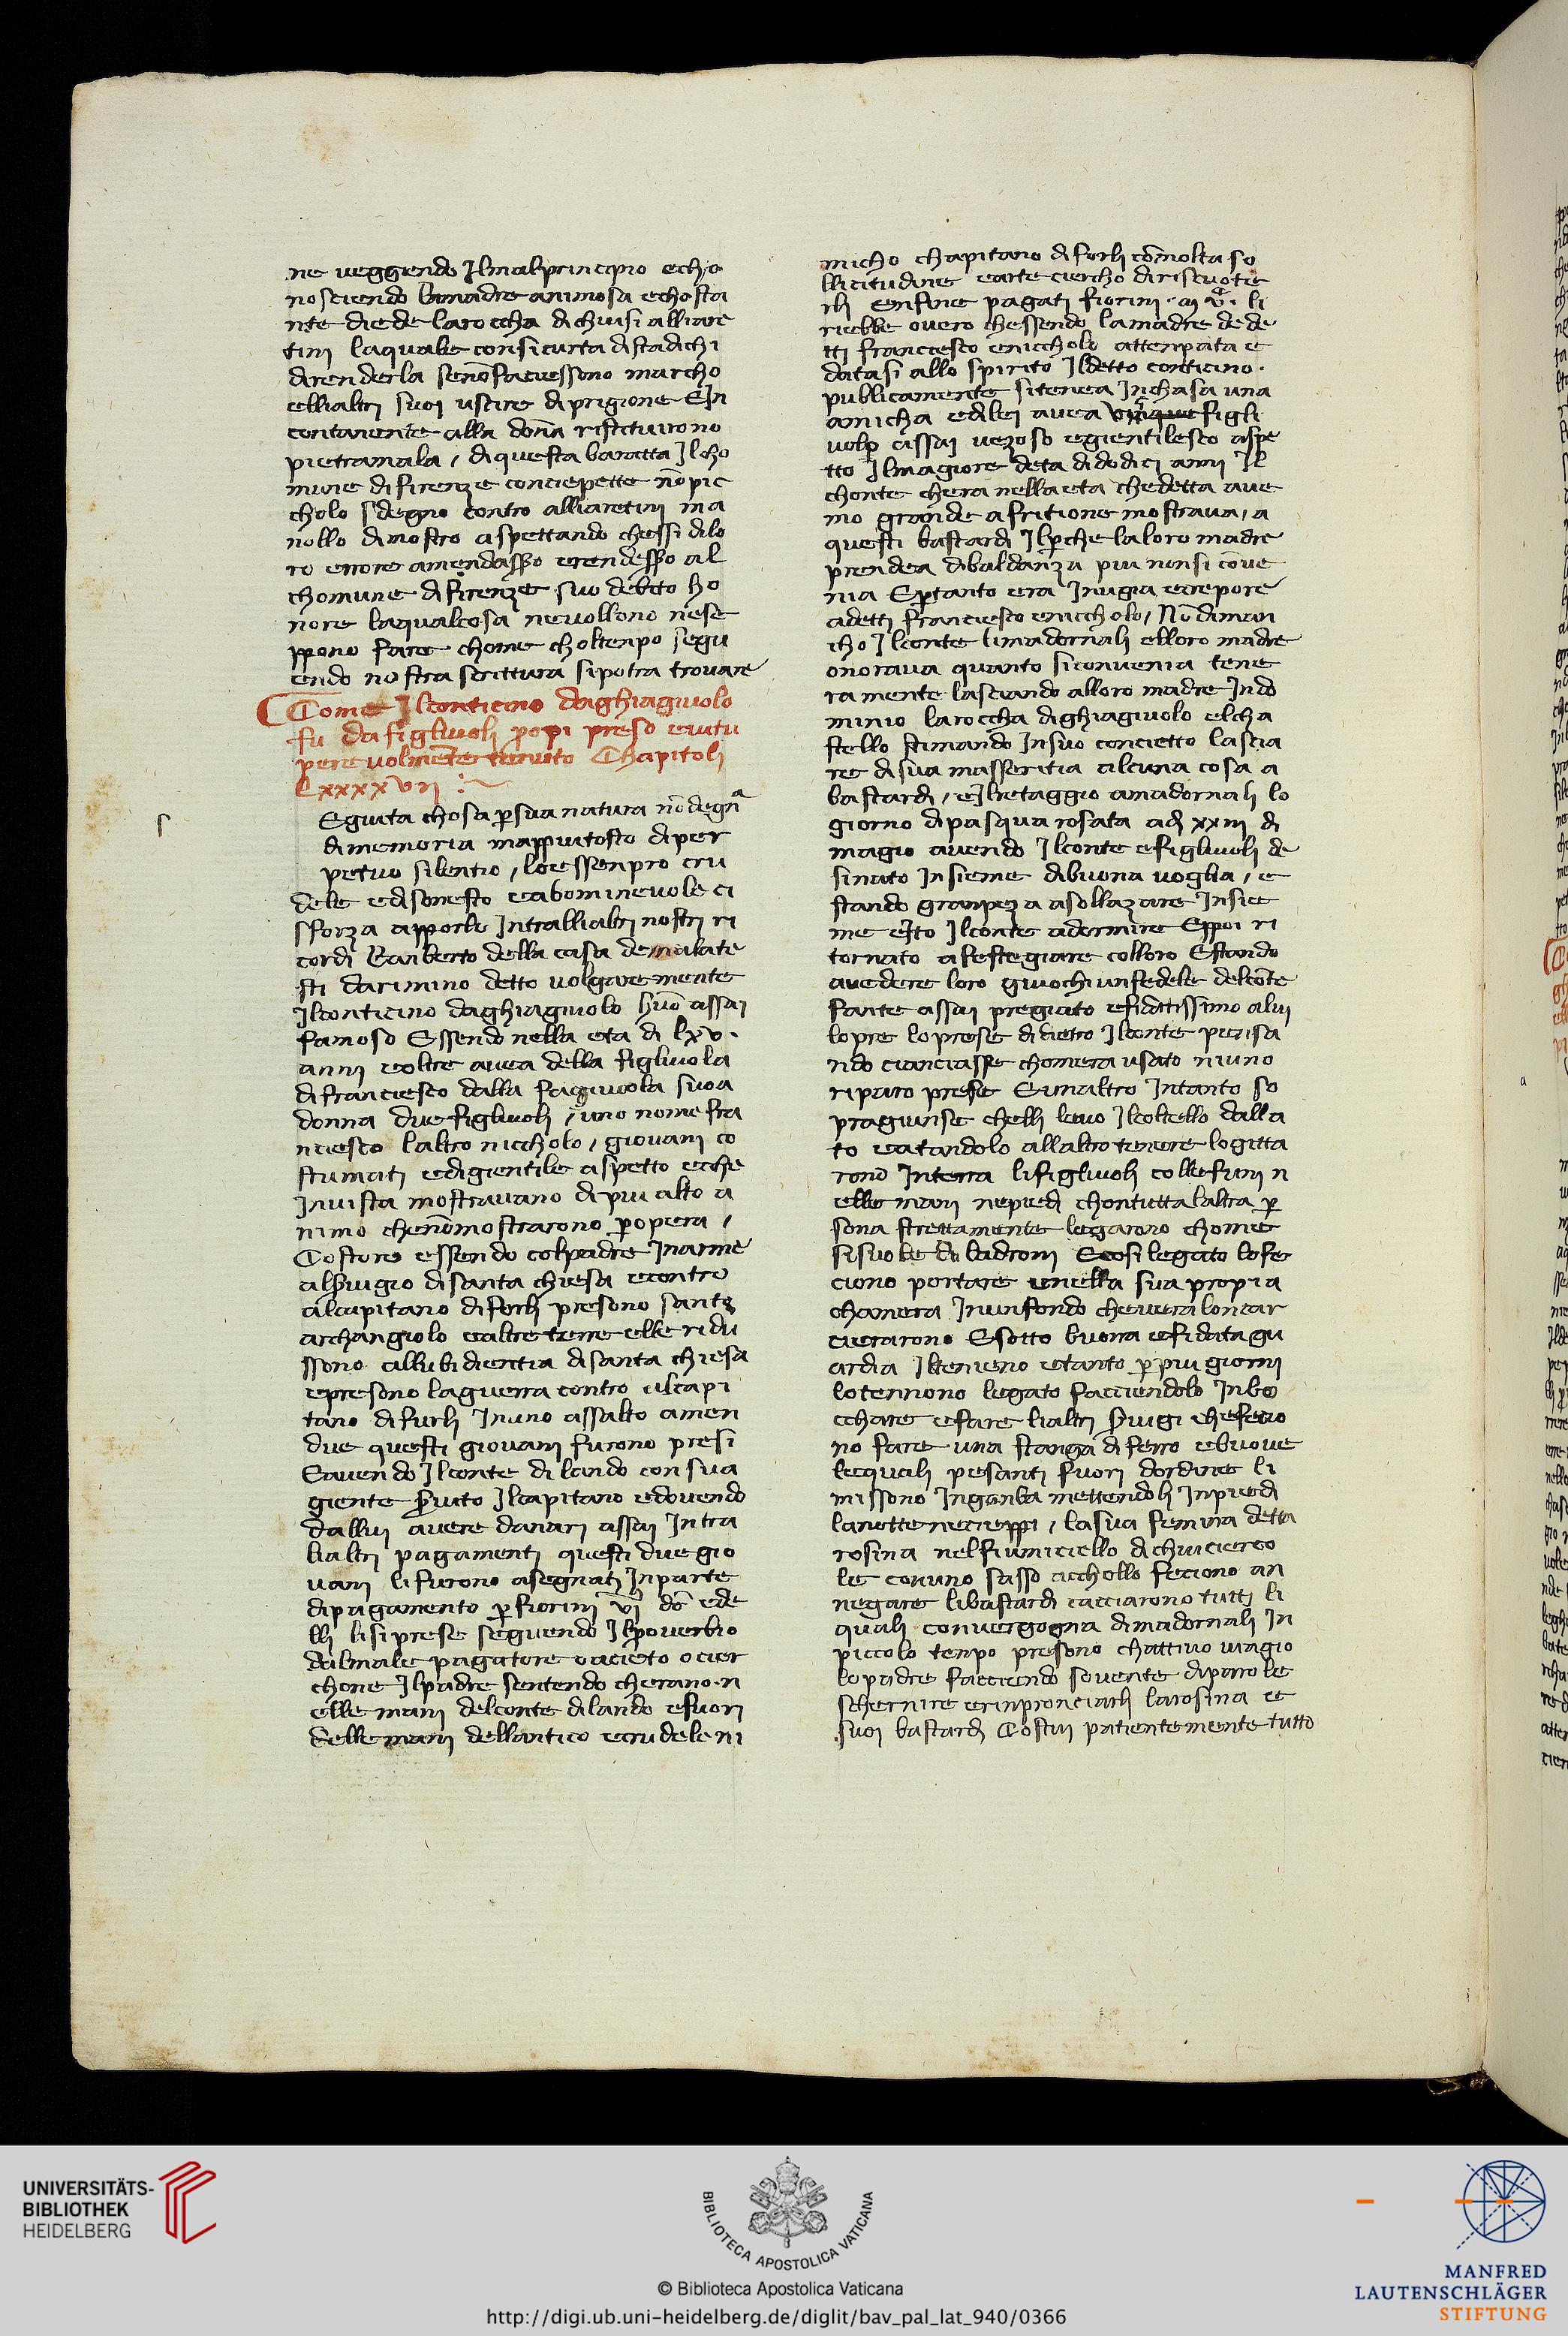 ne veggendo Ilmalprincipio echo
nosciendo lamadre animosa echosta
nte diede laroccha di chiusi alliare
tini laquale consicurta distadichi
direnderla senōfaciessono marcho
ellialtri suoi uscire di prigione EIn
contanente alla dōna ristituirono
pietramala / di questa baratta Ilcho
mune di firenze conciepette nōpic
cholo sdegno contro alliaretini ma
nollo dimostro aspettando chessi dilo
ro errore amendasso erendesso al
chomune di firenze suo debito ho
nore laqualcosa nevollono nese
ppono fare chome choltenpo segu
endo nostra scrittura sipotra trovare
Come Ilconticino daghiagiuolo
fu da figliuoli propi preso evitu
perevolmente tenuto Chapitolj
Lxxxxvij
Eguita chosa psua natura nōdegna
dimemoria mappiutosto diper
petuo silentio / loessenpro cru
dele edisonesto eabominevole ci
sforza apporlo Intrallialtri nostri ri
cordi Ranberto della casa demalate
sti darimino detto volgaremente
Ilconticino daghiagiuolo huō assai
famoso Essendo nella eta di lxv.
anni eoltre avea della figliuola
difranciesco dalla fagiuola sua
donna due figliuoli / uno nome fra
nciesco laltro niccholo / giovani co
stumati edigientile aspetto eche
Invista mostravano di piu alto a
nimo chenōmostrarono popera /
Costoro essendo colpadre Inarme
alsuigio disanta chiesa econtro
alcapitano diforli presono santo
archangiolo ealtreterre elle ridu
ssono allubidientia disanta chiesa
epresono laguerra contro alcapi
tano di furli Inuno assalto amen
due questi giovani furono presi
Eavendo Ilconte di lando con sua
giente suito Ilcapitano edovendo
dallui avere danari assai Intra
lialtri pagamenti questi due gio
vani li furono asegnati Inparte
dipagamento pfiorini vj dō ede
lli lisiprese seguendo Ilproverbio
dalmale pagatore oacieto ocier
chone Ilpadre sentendo cherano n
elle mani delconte dilando efuori
delle mani dellantico ecrudele ni
micho chapitano di forli cōmolta so
llicitudine earte ciercho diriscuoter
li enfine pagati fiorini li
riebbe overo chessendo lamadre dede
tti franciesco eniccholo attenpata e
datasi allo spirito Ildetto conticino
publicamente sitenea Inchasa una
amicha edilei avea figli
uoli assai vezoso egientilesco aspe
tto Ilmagiore deta didodici anni Il
chonte chera nellaeta chedetta ave
mo grande afritione mostrava / a
questi bastardi Ilpche laloro madre
prendea dibaldanza piu nonsi cōve
nia Eptanto era Inugia ecrepore
adetti franciesco eniccholo / Nōdiman
cho Ilconte limadornali elloro madre
onorava quanto siconvenia tene
ramente lasciando alloro madre Indo
minio laroccha dighiagiuolo elcha
stello stimando Insuo concietto lascia
re disua masseritia alcuna cosa a
bastardi / eIlretaggio amadornali lo
giorno dipasqua rosata adj xxiij di
magio avendo Ilconte efigliuoli de
sinato Insieme dibuona voglia / e
stando granpeza asollazare Insie
me eIto Ilconte adormire Eppoi ri
tornato afestegiare colloro Estando
avedere loro giuochi unfedele delcōte
fante assai pregiato efidatissimo alui
lopre loprese didietro Ilconte pensa
ndo cianciasse chomera usato niuno
riparo prese Eunaltro Intanto so
pragiunse chelli levo Ilcoltello dalla
to eatandolo allaltro tenere logitta
rono Interra lifigliuoli collefuni n
elle mani nepiedi chontutta laltra p
sona strettamente legarono chome
sisuole du ladroni Ecosi legato lofe
ciono portare enella sua propia
chamera Inunfondo cheuera loncar
cierarono Esotto buona efidata gu
ardia Iltenieno etanto p piu giorni
lotennono legato facciendolo Inbo
cchare efare lialtri suigi chefecio
no fare una stanga di ferro ebuove
lequali pesanti fuori dordine li
missono Inganba mettendoli Inpiedi
lanotte necieppi / lasua femina detta
rosina nelfiumiciello dichuiciersco
le conuno sasso acchollo feciono an
negare libastardi cacciarono tutti li
quali convergogna dimadornali In
piccolo tenpo presono chattivo viagio
lopadre facciendo sovente diparole
schernire erinpronciarli larosina e
suoi bastardi Costui patientemente tutto
UNIVERSITÄTS-
BIBLIOTHEK
HEIDELBERG
BIBLIOTECA APOSTOLICA VATICANA
© Biblioteca Apostolica Vaticana
http://digi.ub.uni-heidelberg.de/diglit/bav_pal_lat_940/0366
MANFRED
LAUTENSCHLÄGER
STIFTUNG